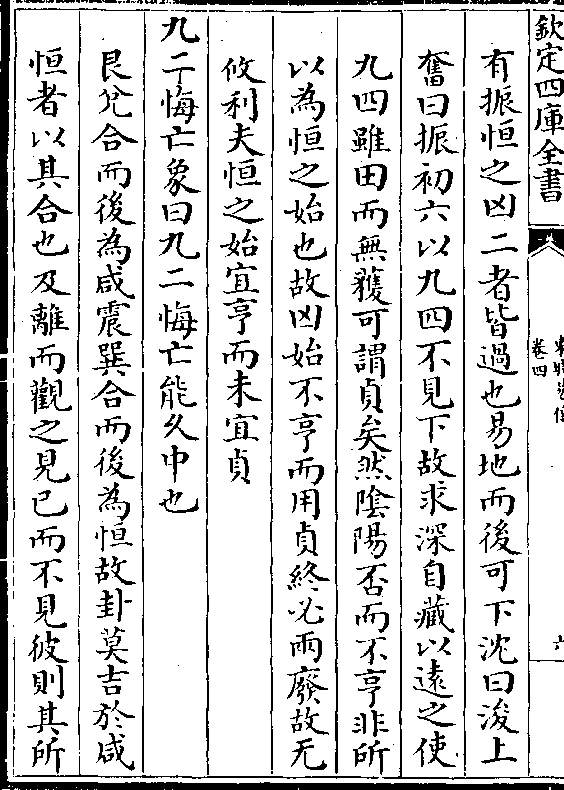 欽定四庫全書
卷四
六
有振恒之凶二者皆過也易地而後可下沈曰浚上
奮曰振初六以九四不見下故求深自藏以遠之使
九四雖田而無獲可謂貞矣然陰陽否而不亨非所
以為恒之始也故凶始不亨而用貞終必兩廢故无
攸利夫恒之始宜亨而未宜貞
九二悔亡象曰九二悔亡能久中也
艮兌合而後為咸震巽合而後為恒故卦莫吉於咸
恒者以其合也及離而觀之見已而不見彼則其所